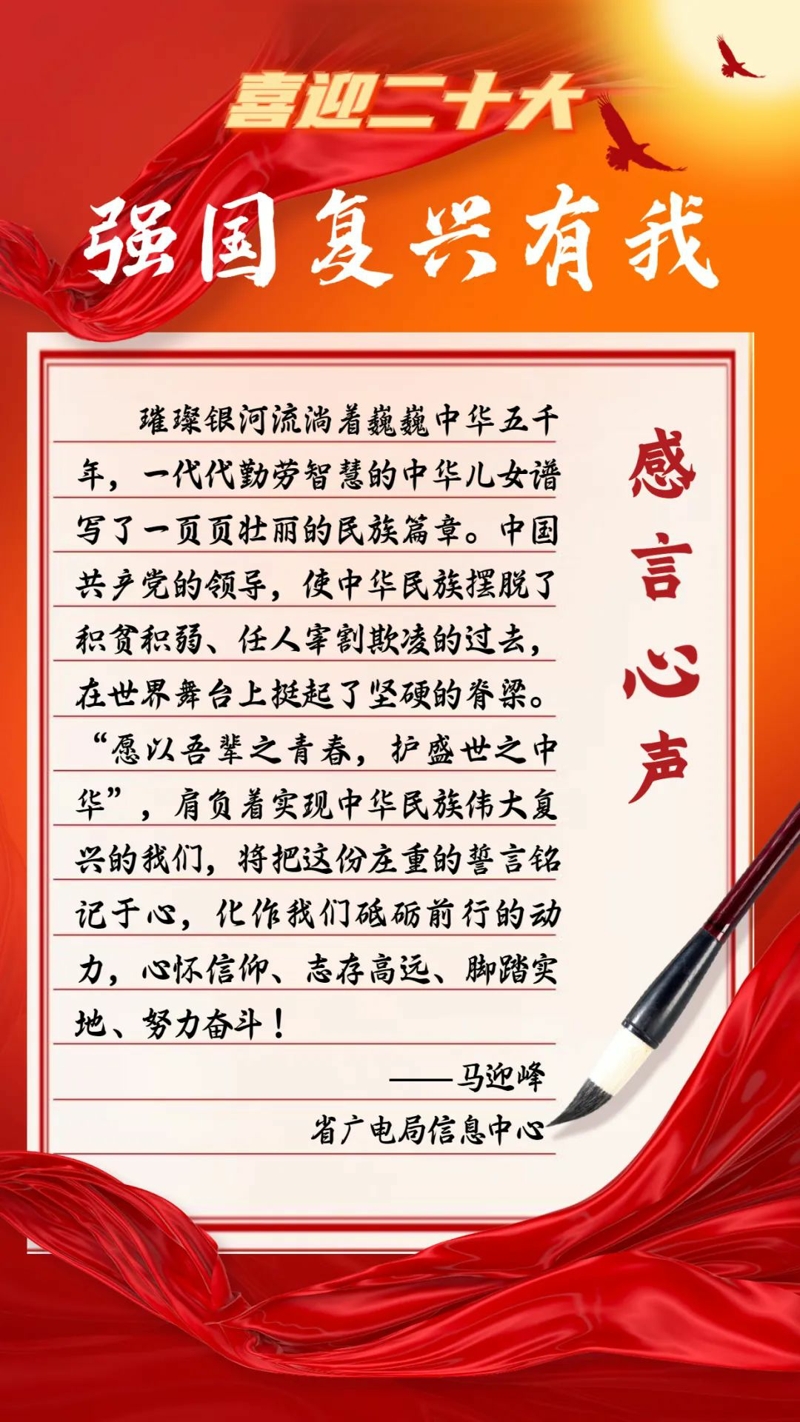 喜迎二十大
强国复兴有我
感言心声
璀璨银河流淌着巍巍中华五千
年，一代代勤劳智慧的中华儿女谱
写了一页页壮丽的民族篇章。中国
共产党的领导，使中华民族摆脱了
积贫积弱、任人宰割欺凌的过去，
在世界舞台上挺起了坚硬的脊梁。
“愿以吾辈之青春，护盛世之中
华”，肩负着实现中华民族伟大复
兴的我们，将把这份庄重的誓言铭
记于心，化作我们砥砺前行的动
力，心怀信仰、志存高远、脚踏实
地、努力奋斗！
——马迎峰
省广电局信息中心